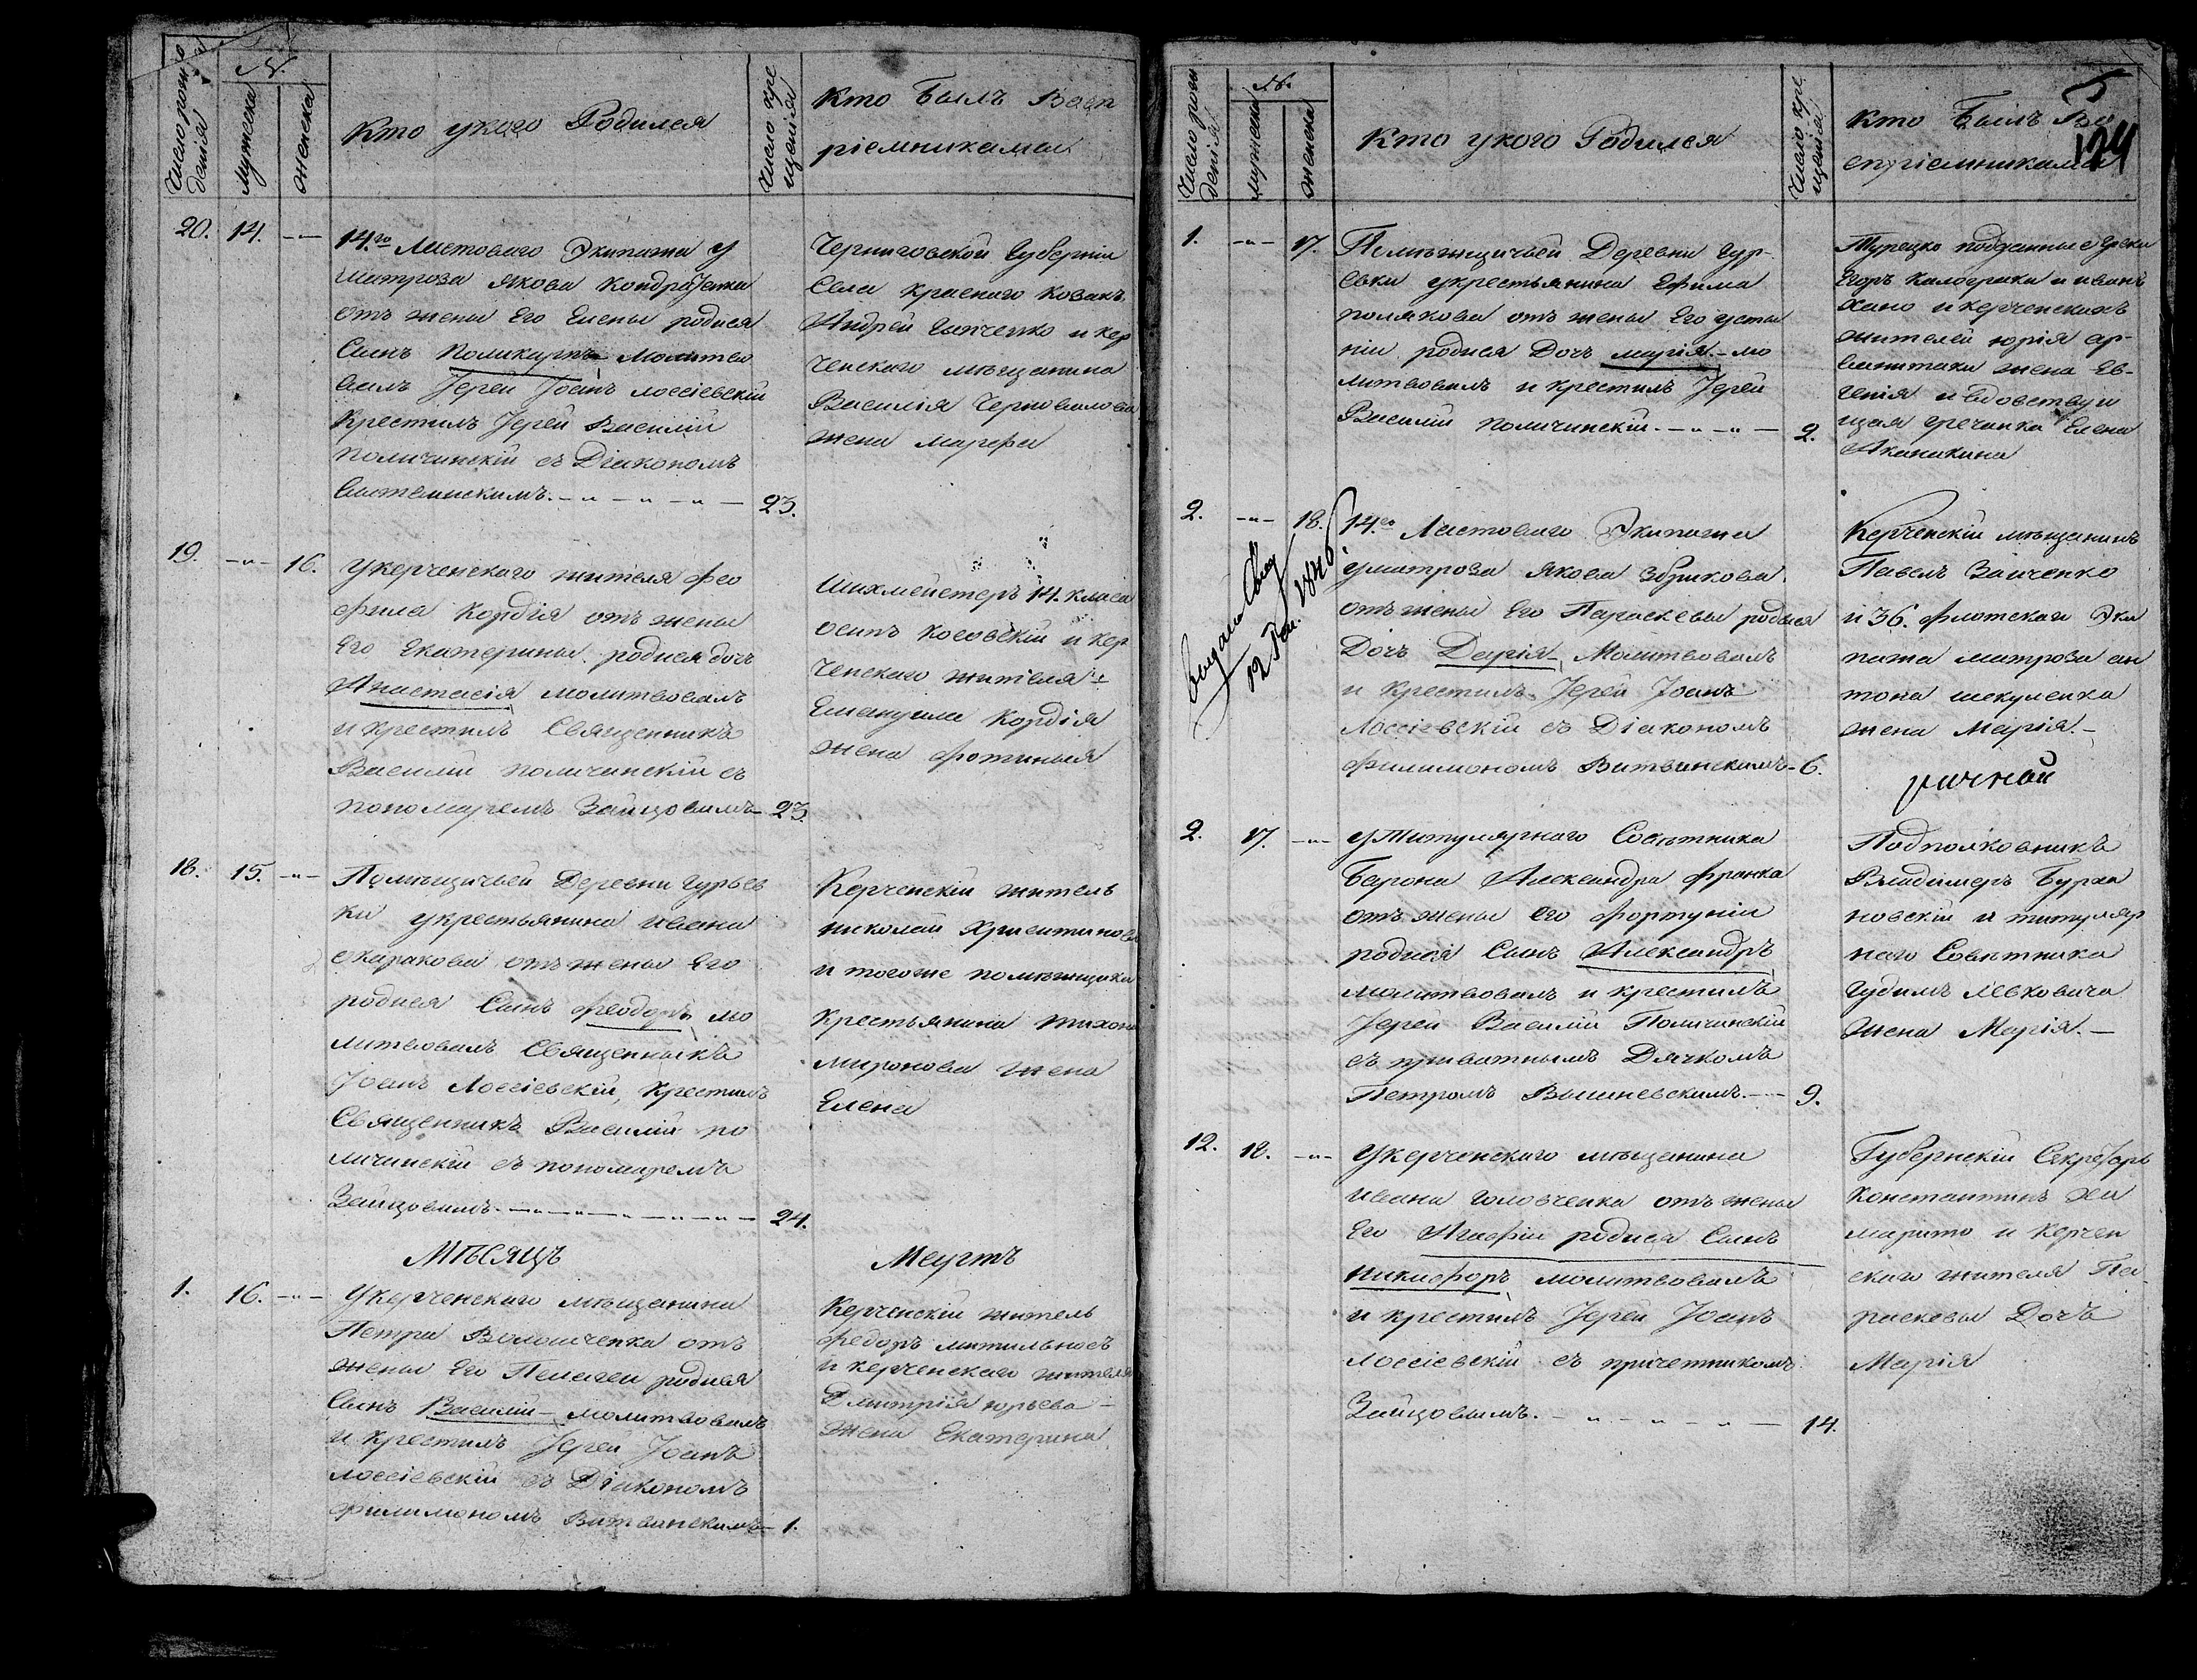 Число рож
денія
№.
Мужеска
Женска
Кто укого Родился
Число кре
щенія
Кто Былъ Восп
ріемниками
20.
14.
14го Ластоваго Экипажа у
матроза Якова Кондратенка
отъ жены Его Елены родися
Сынъ Поликарпъ Молитво
валъ Іерей Іоанъ Лоссіевскій
Крестилъ Іерей Василій
Поличинскій съ Діакономъ
23.
Черниговской Губерніи
Села Краснаго Козакъ
Андрей Ганченко и кер
ченскаго мѣщанина
Василія Черновалова
жена Марфа
19.
16.
укерченскаго жителя Фео
фила Кордія отъ жены
Его Екатерины родися дочь
Анастасія молитвовалъ
и крестилъ Священникъ
Василій Поличинскій съ
пономаремъ Зайцовымъ
23.
Шихмейстеръ 14. класа
осипъ Косовскій и кер
ченскаго жителя
Емануила Кордія
жена Фотинья
18.
15.
Помѣщичьей Деревни Гурьев
ки укрестьянина Ивана
скаракова отъ жены Его
родися Сынъ Феодоръ мо
литвовалъ Священникъ
Іоанъ Лоссіевскій, Крестилъ
Священникъ Василій по
личинскій съ пономаремъ
Зайцовымъ
24.
Керченскій житель
николай Христинова
и тогоже помѣщика
крестьянина Тихона
миронова жена
Елена
Мѣсяцъ
Мартъ
1.
16.
Укерченскаго мѣщанина
Петра Волошченка отъ
жены Его Пелагеи родися
Сынъ Василій молитвовалъ
и крестилъ Іерей Іоанъ
Лоссіевскій съ Діакономъ
филимономъ Витвинскимъ
1.
Керченскій житель
Федоръ
и керченскаго жителя
Дмитрія юрьева
жена Екатерина
Число рож
денія
№.
мужеска
женска
Кто укого Родился
Число кре
щенія
Кто Былъ Во
спріемниками
124
1.
17.
Помѣщичьей Деревни Гур-
евки укрестьянина Ефима
полякова отъ жены Его усти
ніи родися Дочь марія мо
литвовалъ и крестилъ Іерей
Василій Поличинскій
2.
Турецко подданные Греки
Егоръ Калогрика и иванъ
и керченскихъ
жителей юрія ар-
жена Ев-
генія и Вдовствую
щая гречанка Елена
2.
18.
выдана
12 Ген. 1846
14го Ластоваго Экипажа
уматроза Якова Збрикова
отъ жены Его Параскевы родися
Дочь Дарія Молитвовалъ
и крестилъ Іерей Іоанъ
Лоссіевскій съ Діакономъ
филимономъ Витвинскимъ
6.
Керченскій мѣщанинъ
Павелъ Заиченко
и 36. флотскаго Эки
пажа матроза ан
тона шекуленка
жена Марія.
2.
17.
уТитулярнаго Совѣтника
Барона Александра Франка
отъ жены Его Фортуніи
родися Сынъ Александръ
молитвовалъ и крестилъ
Іерей Василій Поличинскій
съ приватнымъ Дячкомъ
Петромъ Вышневскимъ
9.
Подполковникъ
Владимеръ Бурха
новскій и титуляр
наго Совѣтника
Гудимъ Левковича
жена Марія.
12.
18.
Укерченскаго мѣщанина
Ивана Головченка отъ жены
Его Агафіи родися Сынъ
никифоръ молитвовалъ
и крестилъ Іерей Іоанъ
Лоссіевскій съ причетникомъ
Зайцовымъ.
14.
Губернскій Секретарь
Константинъ Хи
марито и Керчен
скаго жителя Па
раскевы Дочь
Марія